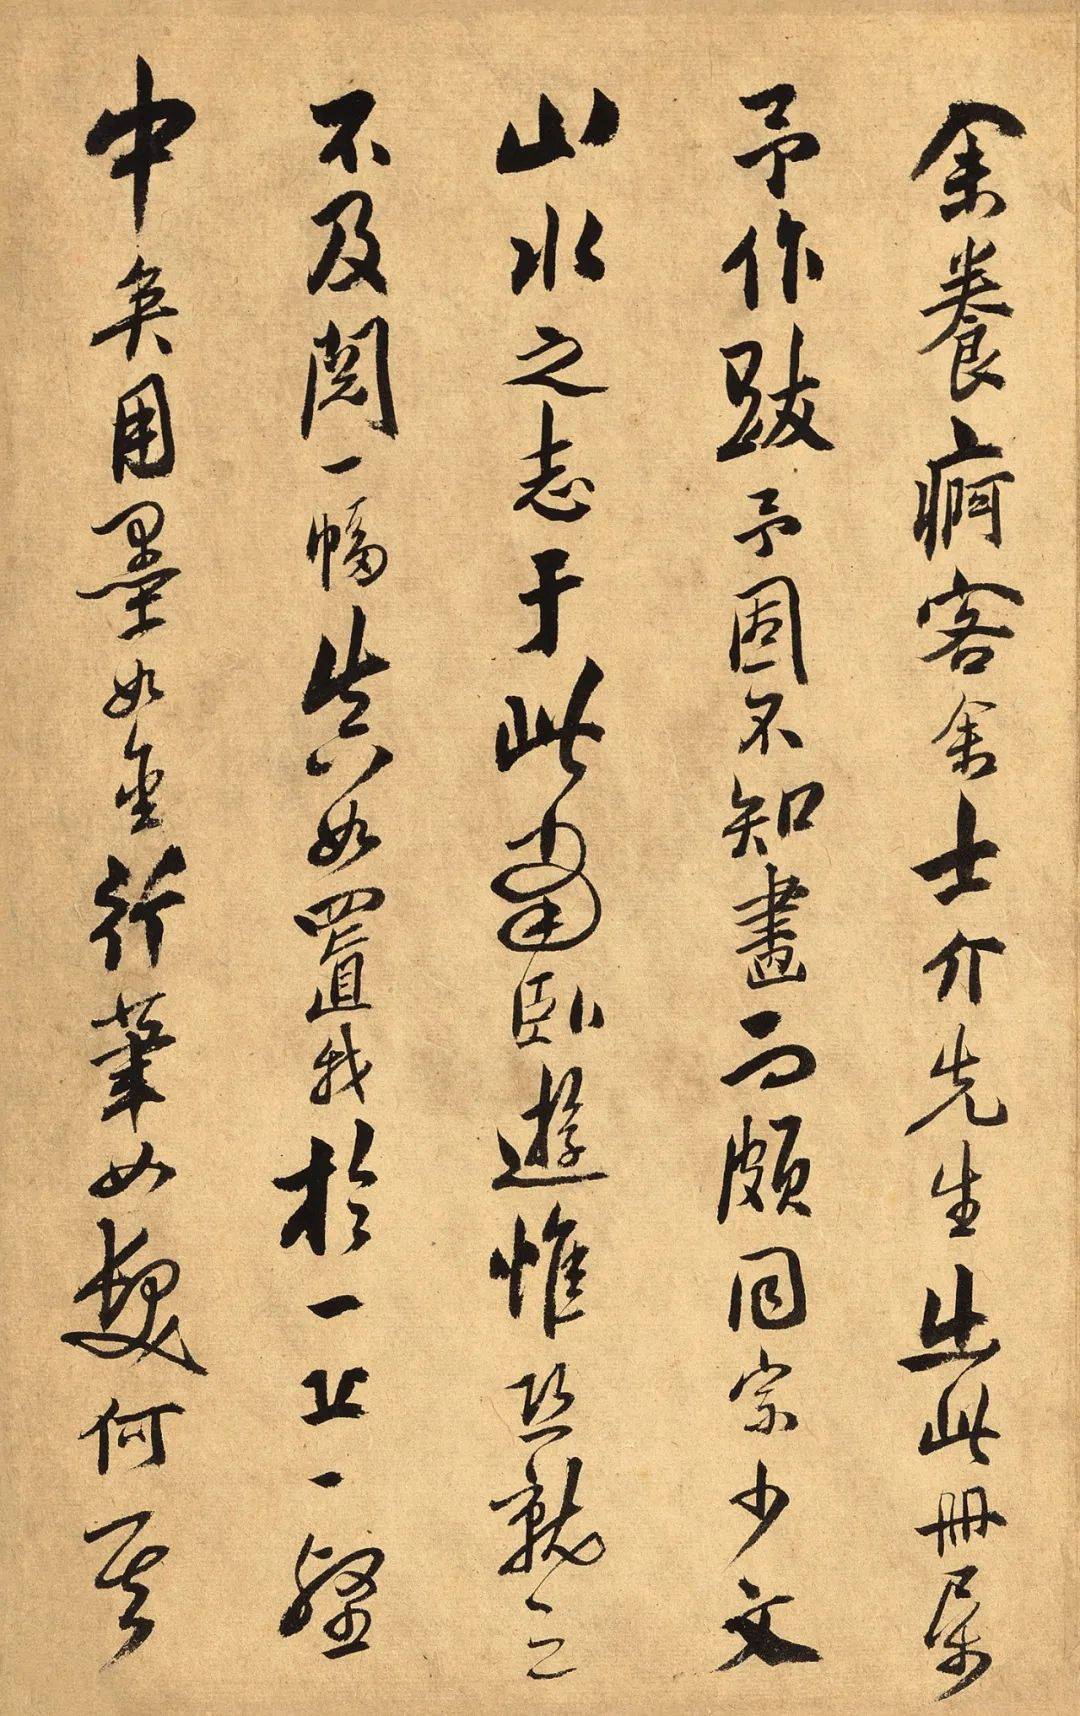 余養痾客余士介先生出此冊屬
予作跋予固不知畫而頗同宗少文
山水之志于此當臥遊惟恐就之
不及閱一幅真如置我於一丘一壑
中矣用墨如金行筆如髮何其